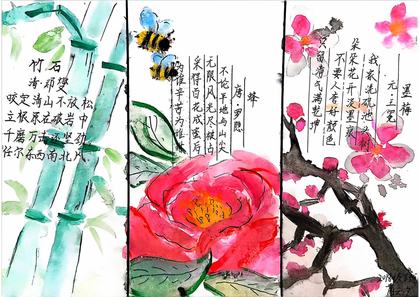 竹石
清·郑燮
咬定清山不放松
立根原在破岩中
千磨万击还坚劲
任尔东西南北风
蜂
唐·罗隐
不论平地与山尖
无限风光尽被占
采得百花成蜜后
为谁辛苦为谁甜
墨梅
元 王冕
我家洗砚池头树
朵朵花开淡墨痕
不要人夸好颜色
只留清气满乾坤